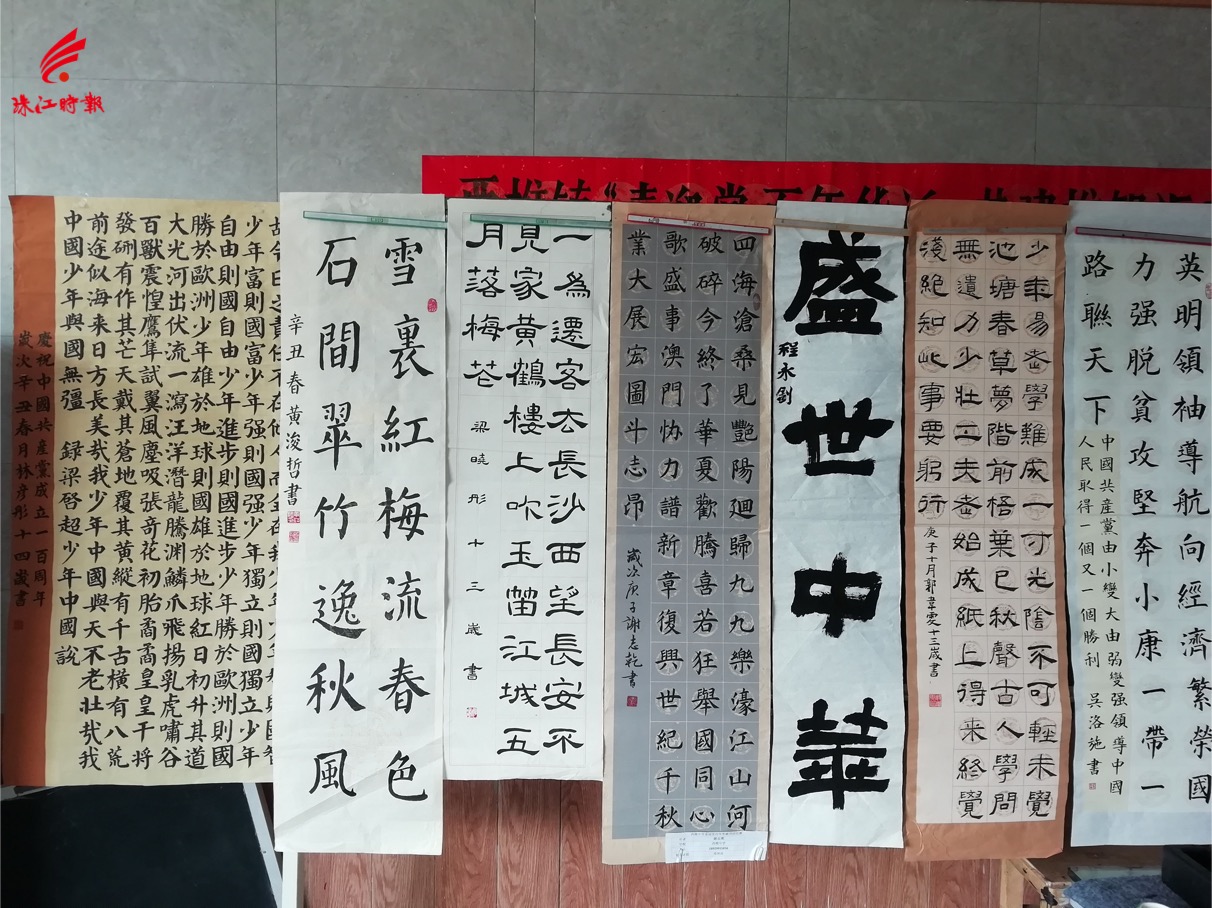 珠江時報
英明領袖導航向經濟繁榮國
力强脱貧攻堅奔小康一帶一
路聯天下
中國共産黨由小變大由弱變强領導中國
人民取得一個又一個勝利 吴洛施書
少年易老學難成一寸光陰不可輕未覺
池塘春草夢階前梧葉已秋聲古人學問
無遺力少壯工夫老始成紙上得来終覺
淺絕知此事要躬行 庚子十月郭韋雯十三歲書
盛世中華
程永釗
四海滄桑見艷陽廻歸九九樂濠江山河
破碎今終了華夏歡騰喜若狂舉國同心
歌盛事澳門協力譜新章復興世紀千秋
業大展宏圖斗志昂 歲次庚子謝志乾書
一爲遷客去長沙西望長安不
見家黄鶴樓上吹玉笛江城五
月落梅花 梁曉彤十三歲書
雪裏紅梅流春色
石間翠竹逸秋風
辛丑春黄浚哲書
故今日之責任不在他人而全在我少年
少年富則國富少年强則國强少年獨立則國獨立少年
自由則國自由少年進步則國進步少年勝於歐洲則國
勝於歐洲少年雄於地球則國雄於地球紅日初升其道
大光河出伏流一瀉汪洋潛龍騰淵鱗爪飛揚乳虎嘯谷
百獸震惶鷹隼試翼風塵吸張奇花初胎矞矞皇皇干將
發硎有作其芒天戴其蒼地覆其黄縱有千古横有八荒
前途似海来日方長美哉我少年中國與天不老壯哉我
中國少年與國無疆 録梁啓超少年中國說
慶祝中國共産黨成立一百周年
歲次辛丑春月林彦彤十四歲書